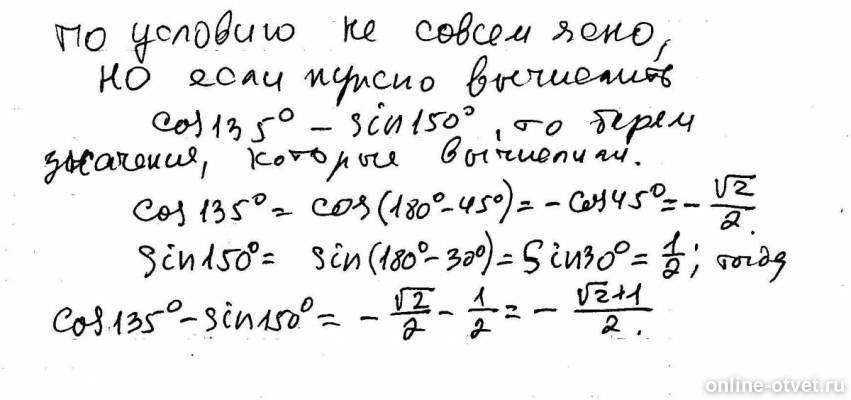 по условию не совсем ясно,
но если нужно вычислить
cos135° - sin150°, то берем
значения, которые вычислили.
cos135° = cos(180°-45°) = -cos45° = -√2/2.
sin150° = sin(180°-30°) = Sin30° = 1/2; тогда
cos135° - sin150° = -√2/2 - 1/2 = -(√2+1)/2.
online-otvet.ru